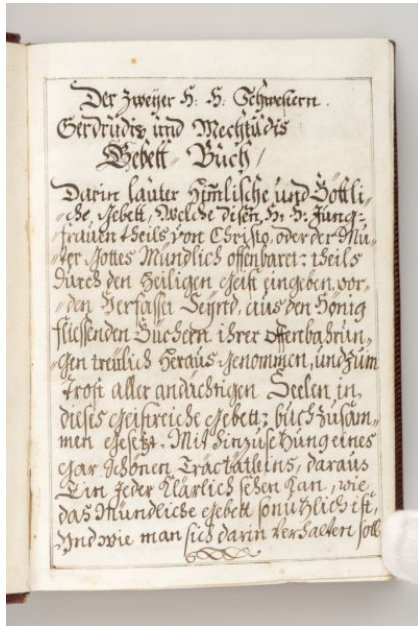 Der Zweyer H: H: Schwestern.
Gerdrudis und Mechtildis
Gebett- Buch /
Darin lauter Him̃lische und Göttli-
-che Gebett, Welche disen H: H: Jung-
-frauen theils von Christo, oder der Mu-
-ter Gottes Mundlich offenbaret: theils
durch den Heiligen Geist eingeben wor-
-den Verfasset Seynd, aus den Hönig
fliessenden Büchern ihrer Offenbahrun-
-gen treülich Heraus Genommen, und zum
trost aller andächtigen Seelen, in
dieses Geistreiche Gebett: buch zusam-
men Gesetzt. Mit hinzusetzung eines
Gar Schönen Tractätleins, daraus
Ein Jeder Klärlich sehen Kan, wie
das Mündliche Gebett so nützlich ist,
Und wie man sich darin Verhalten soll